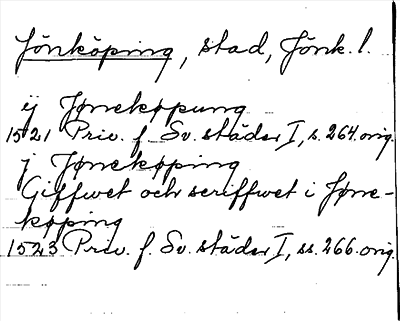 Jönköping, stad, Jönk. l.
ij Jønekøpung
1521 Priv. f. Sv. städer I, s. 264. orig.
j Jønekøping
Giffwet och scriffwet i Jøne-
køping
1523 Priv. f. Sv. städer I, ss. 266. orig.